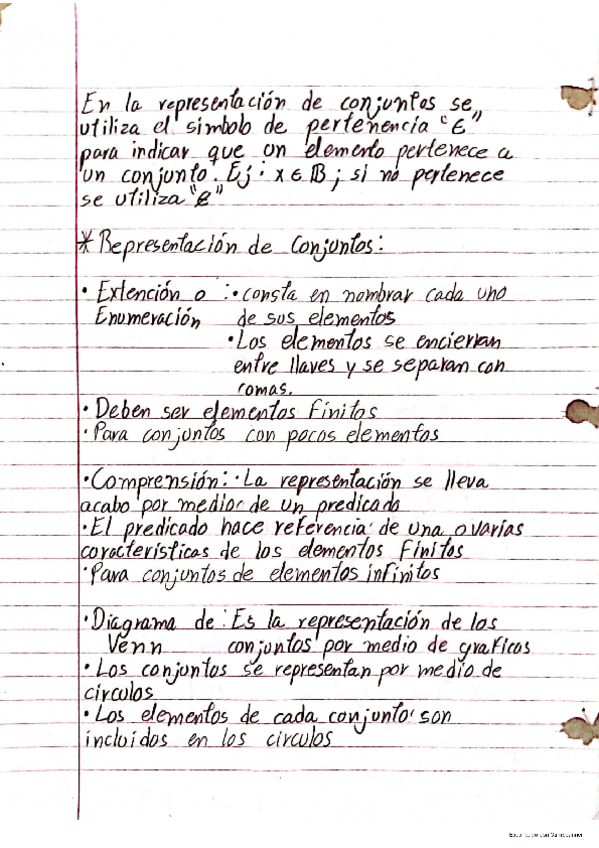 En la representación de conjuntos se
utiliza el simbolo de pertenencia "∈"
para indicar que un elemento pertenece a
un conjunto. Ej: x ∈ B; si no pertenece
se utiliza "∉"
* Representación de Conjuntos:
• Extención o : • consta en nombrar cada uno
Enumeración de sus elementos
• Los elementos se encierran
entre llaves y se separan con
comas.
• Deben ser elementos finitos
• Para conjuntos con pocos elementos
• Comprensión: • La representación se lleva
acabo por medio de un predicado
• El predicado hace referencia de una o varias
caracteristicas de los elementos Finitos
• Para conjuntos de elementos infinitos
• Diagrama de : Es la representación de los
Venn conjuntos por medio de graficos
• Los conjuntos se representan por medio de
circulos
• Los elementos de cada conjunto son
incluidos en los circulos